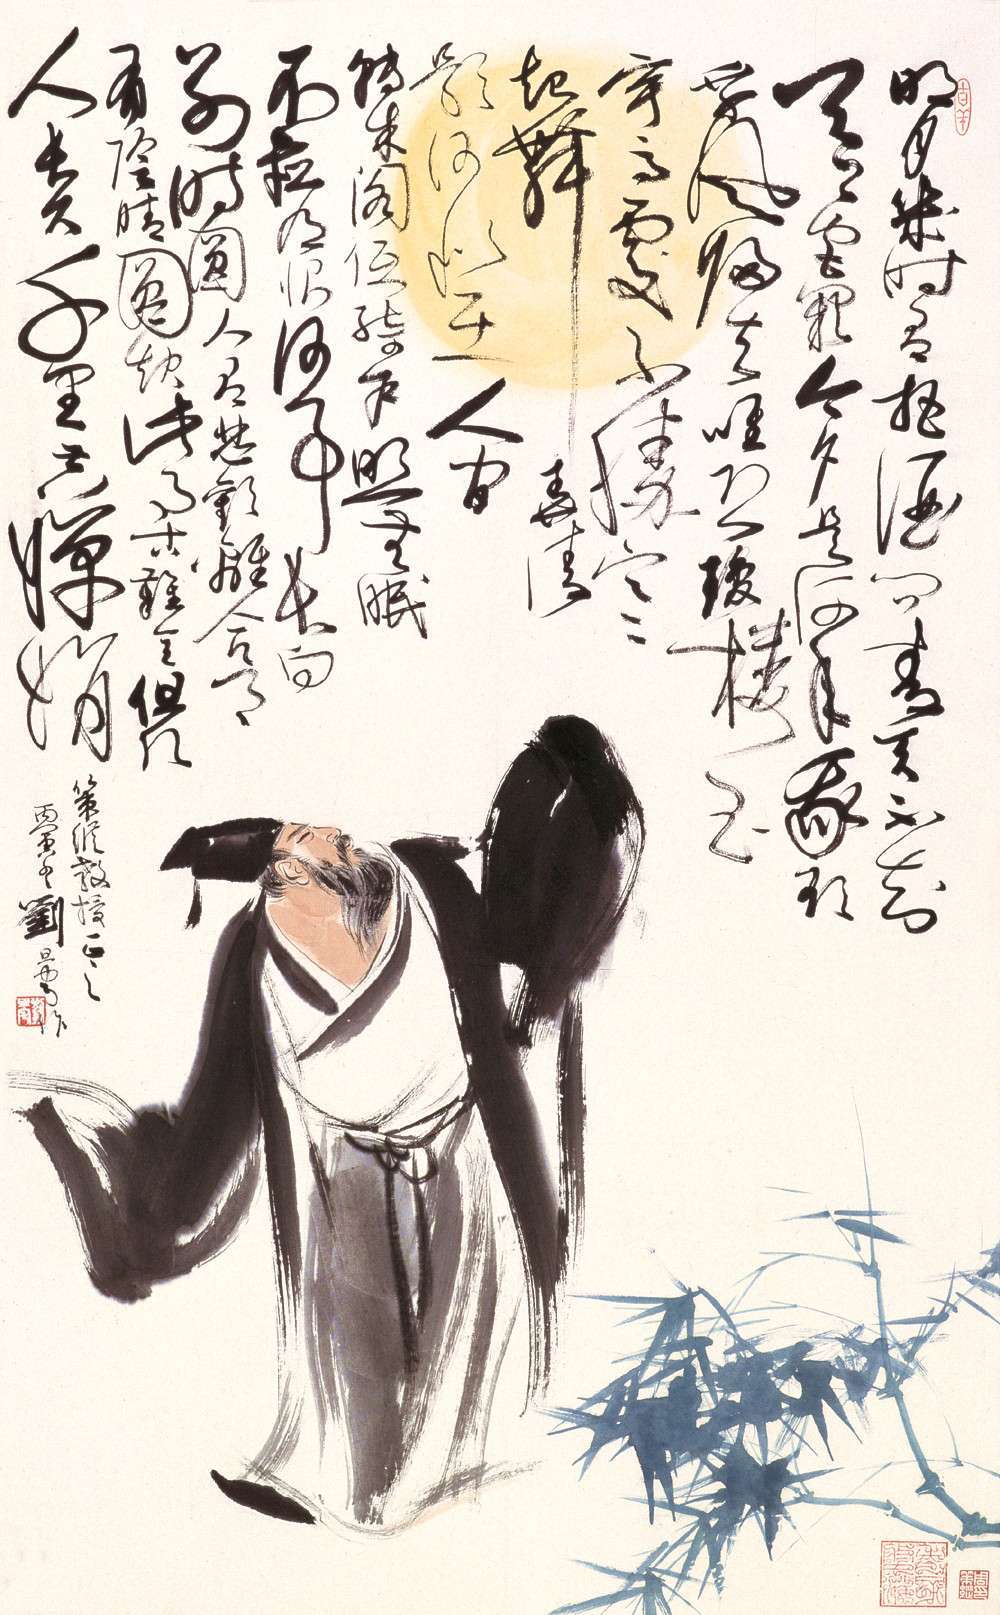 明月幾時有把酒問青天不知
天上宮闕今夕是何年我欲
乘風歸去唯恐瓊樓玉
宇高處不勝寒
起舞弄清
影何似在人間
轉朱閣低綺戶照無眠
不應有恨何事長向
別時圓人有悲歡離合月
有陰晴圓缺此事古難全但願
人長久千里共嬋娟
策縱教授正之
丙寅冬劉旦宅作
吉羊